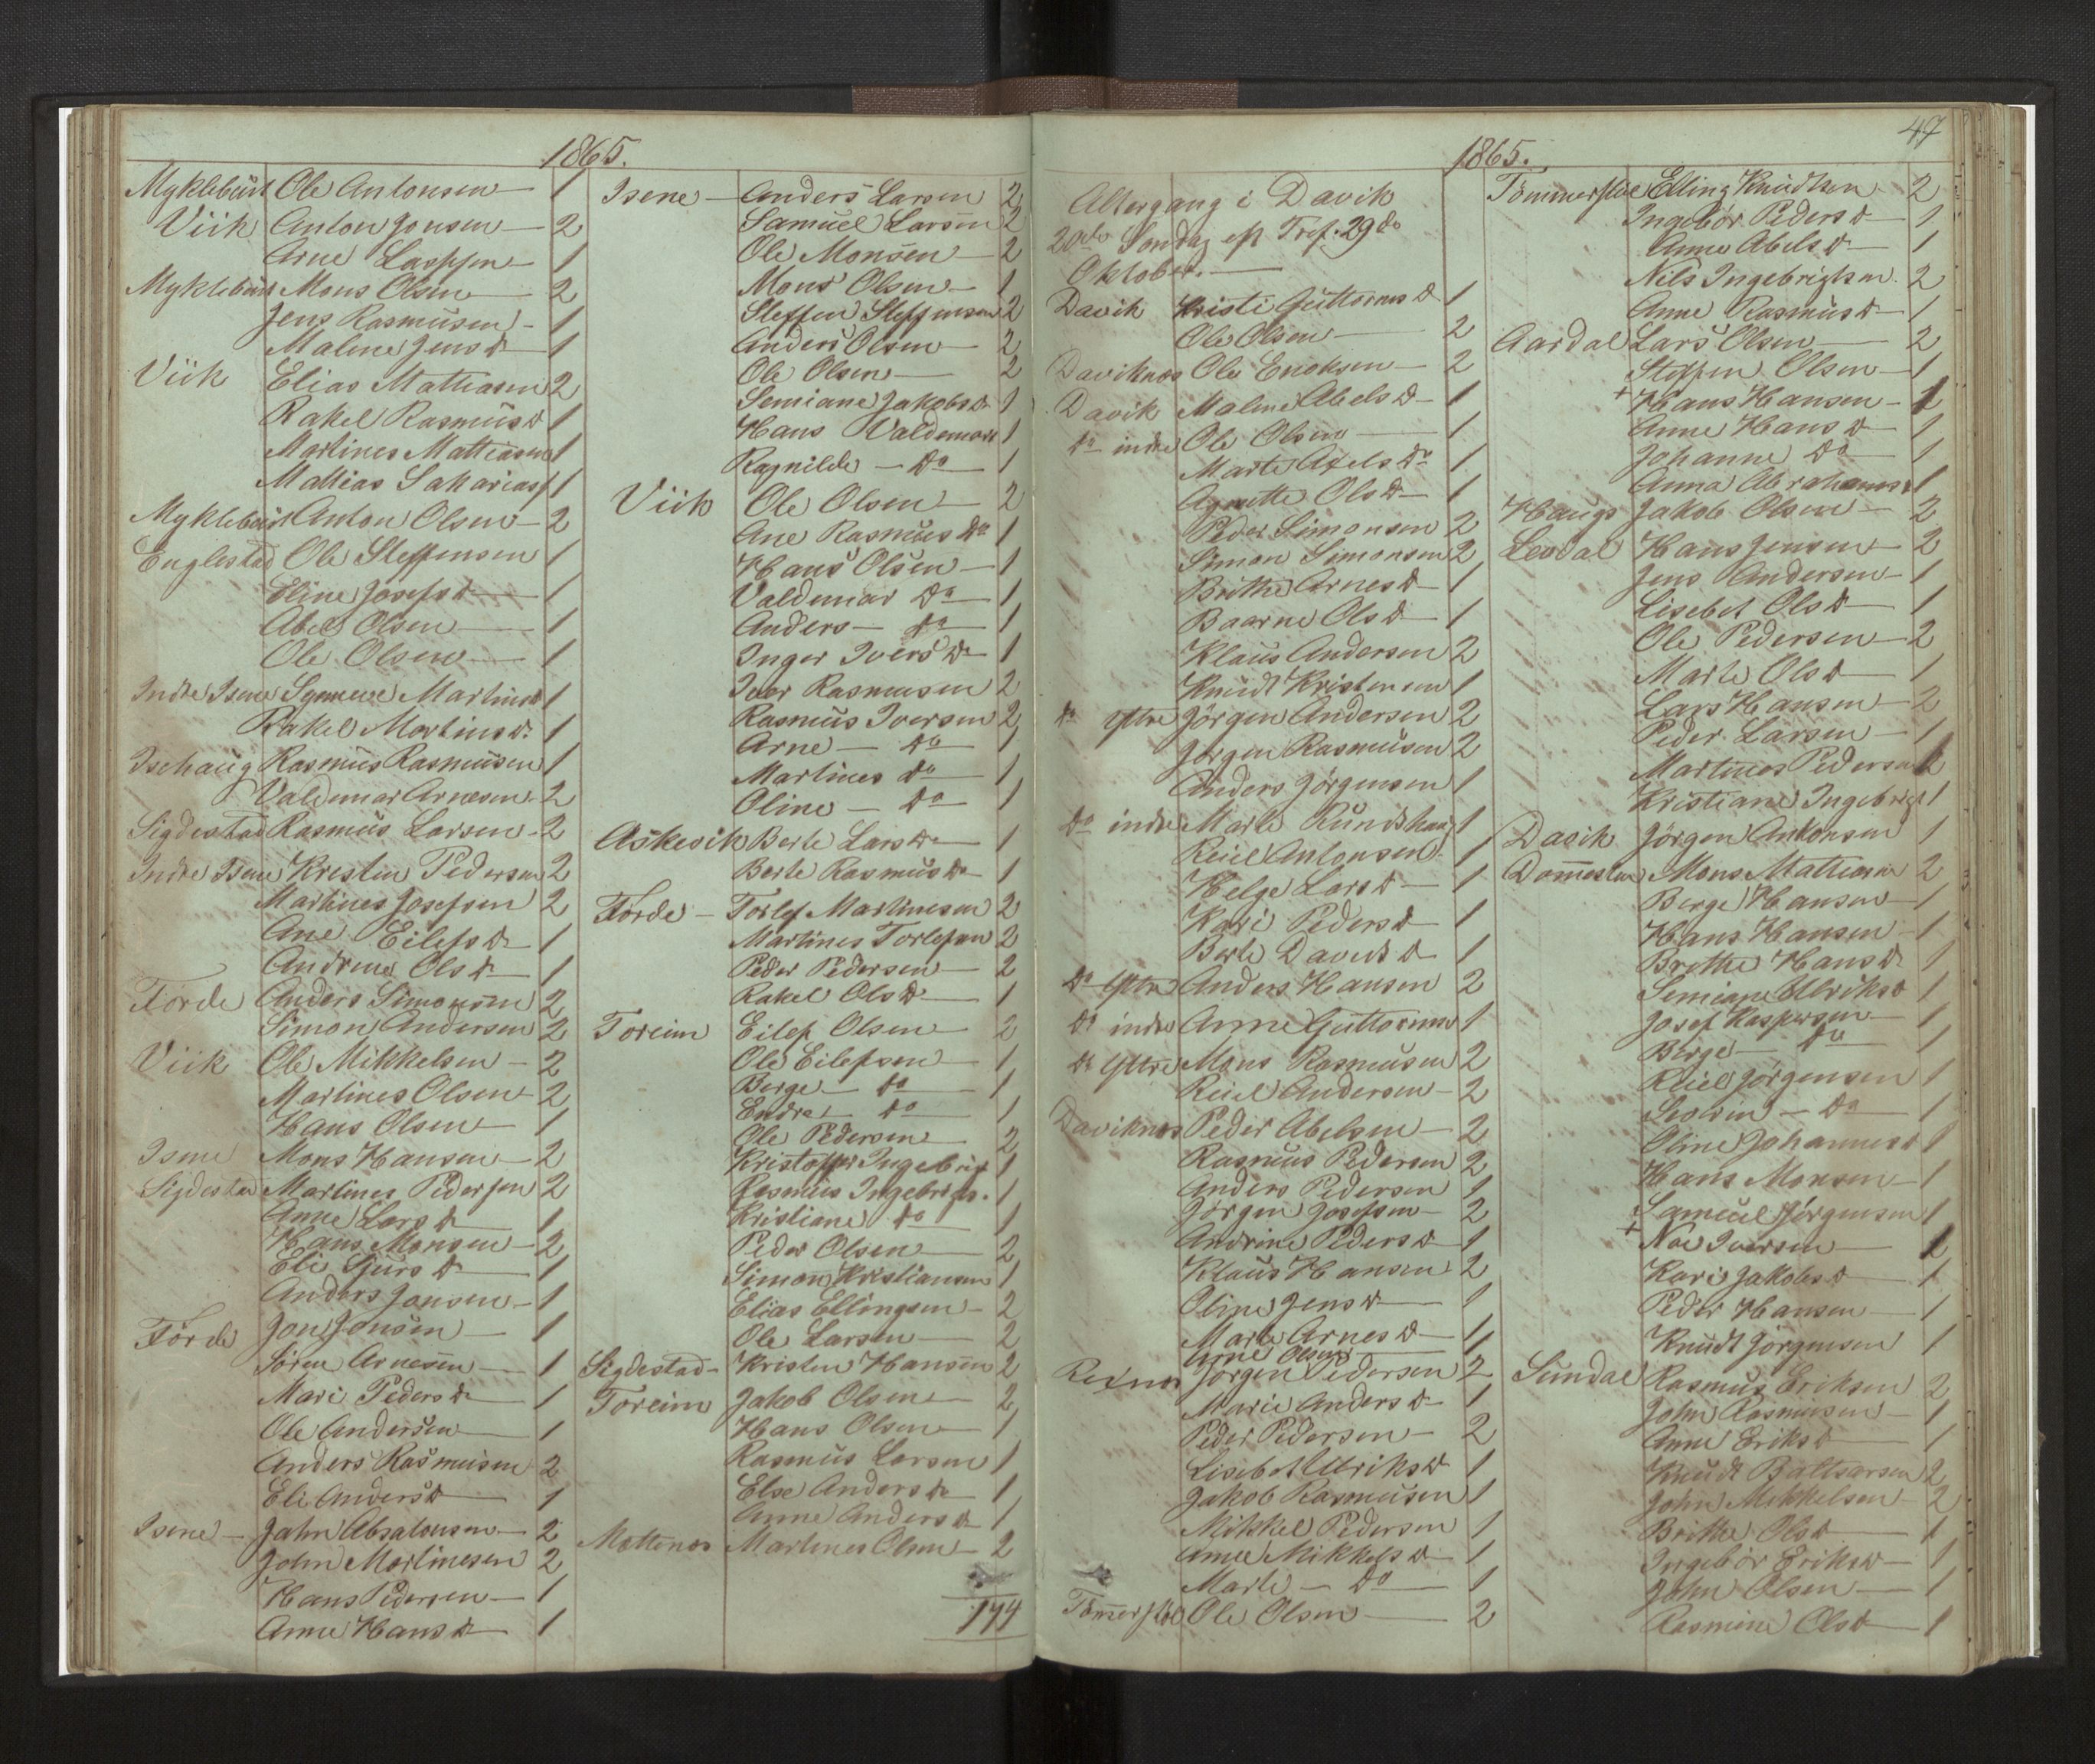 1865.
Myklebust Ole Antonsen 1
Viik Anton Jonsen 2
Arne Lasssen 1
Myklebust Mons Olsen 2
Jens Rasmusen 1
Malene Jens D 1
Viik Elias Mattiasen 2
Rakel Rasmus D 1
Martines Mattiasen 1
Mattias Sakarias 1
Myklebust Anton Olsen 2
Englestad Ole Steffensen 1
Eline Josefs D 1
Abel Olsen 1
Ole Olsen 1
Indre Isene Synneve Martins D 1
Rakel Martins D. 1
Isehaug Rasmus Rasmusen 1
Valdemar Arnesen 2
Sigdestad Rasmus Larsen 2
Indre Isene Kristen Pedersen 2
Martines Josefsen 2
Ane Eilefs D 1
Andrine Ols D 1
Förde Anders Simonsen 2
Simon Andersen 2
Viik Ole Mikkelsen 2
Martines Olsen 2
Hans Olsen 1
Isene Mons Hansen 2
Sigdestad Martines Pedersen 2
Anne Lars D 1
Hans Monsen 2
Eli Sjurs D 1
Anders Jonsen 1
Förde Jon Jonsen 1
Sören Arnesen 1
Mari Peders D 1
Ole Andersen 1
Anders Rasmusen 2
Eli Anders D 1
Isene John Absalonsen 2
John Martinesen 2
Hans Pedersen 1
Anne Hans D 1
Isene Anders Larsen 2
Samuel Larsen 2
Ole Monsen 2
Mons Olsen 1
Steffen Steffensen 2
Anders Olsen 2
Ole Olsen 2
Semiane Jakobs D 1
Hans Valdemars 1
Ragnilde Do 1
Viik Ole Olsen 2
Ane Rasmus Do 1
Hans Olsen 1
Valdemar Do 1
Anders Do 1
Inger Ivers D 1
Iver Rasmusen 2
Rasmus Iversen 2
Arne Do 1
Martines Do 1
Oline Do 1
Askevik Berte Lars D 1
Berte Rasmus D 1
Förde Torlef Martinesen 2
Martines Torlefsen 2
Peder Pedersen 2
Rakel Ols D 1
Foreim Eilef Olsen 2
Ole Eilefsen 1
Berge Do 1
Endre Do 1
Ole Pedersen 2
Kristoffer Ingebrigt 1
Rasmus Ingebrigts. 1
Kristiane Do 1
Peder Olsen 2
Simon Kristiansen 1
Elias Ellingsen 2
Ole Larsen 2
Sigdestad Kristen Hansen 2
Foreim Jakob Olsen 2
Hans Olsen 1
Rasmus Larsen 1
Else Anders D 1
Anne Anders D 1
Mettenes Martines Olsen 2
174
47
1865.
Altergang i Davik
20de Sondag eft Tref. 29de
Oktober.
Davik Kristi Guttorms D 1
Ole Olsen 2
Daviknes Ole Enoksen 2
Davik Maline Abels D 1
Do indre Ole Olsen 1
Marte Axels Do 1
Agnette Ols D 1
Peder Simonsen 2
Simon Simonsen 2
Brithe Arnes D 1
Baarne Ols D 1
Klaus Andersen 2
Knudt Kristensen 1
Do Yttre Jörgen Andersen 2
Jörgen Rasmusen 2
Anders Jörgensen 1
Do indre Marte 1
Reiel Antonsen 1
Helge Lars D 1
Kari Peders D 1
Berte Davids D 1
Do Yttre Anders Hansen 2
Do indre Anne Guttorms 1
Do Yttre Mons Rasmusen 2
Reiel Andersen 2
Daviknes Peder Abelsen 2
Rasmus Pedersen 2
Anders Pedersen 1
Jörgen Josefsen 2
Andrine Peders D 1
Klaus Hansen 2
Oline Jens D 1
Marte Arnes D 1
Arne Olsen 1
Rexnes Jörgen Pedersen 2
Marie Anders D 1
Peder Pedersen 2
Lisebet Ulriks D 1
Jakob Rasmusen 1
Mikkel Pedersen 1
Anne Mikkels D 1
Marte Do 1
Tömmerstöl Ole Olsen 2
Tömmerstöl Elling Knudtsen 2
Ingebör Peders D 1
Anne Abels D 1
Nils Ingebrigtsen 2
Anne Rasmus D 1
Aardal Lars Olsen 2
Steffen Olsen 1
+ Hans Hansen 1
Anne Hans D 1
Johanne Do 1
Anna Abrahams 1
Haugs Jakob Olsen 2
Levdal Hans Jensen 2
Jens Andersen 1
Lisebet Ols D 1
Ole Pedersen 2
Marte Ols D 1
Lars Hansen 2
Peder Larsen 1
Martines Pedersen 2
Kristiane Ingebrigt 1
Davik Jörgen Antonsen 1
Domestein Mons Mattiasen 2
Berge Hansen 1
Hans Hansen 1
Brethe Hans D 1
Semiane Ulriks D 1
Josef Kaspersen 1
Berge Do 1
Reiel Jörgensen 1
Sedvin Do 1
Oline Johannes D 1
Hans Monsen 1
Samuel Jörgensen 1
+ Noe Iversen 2
Kari Jakobs D 1
Peder Hansen 1
Knudt Jörgensen 1
Sundal Rasmus Eriksen 2
John Rasmusen 1
Anne Eriks D 1
Knudt Baltsarsen 2
John Mikkelsen 2
Brithe Ols D 1
Ingebör Eriks D 1
John Olsen 1
Rasmine Ols D 1